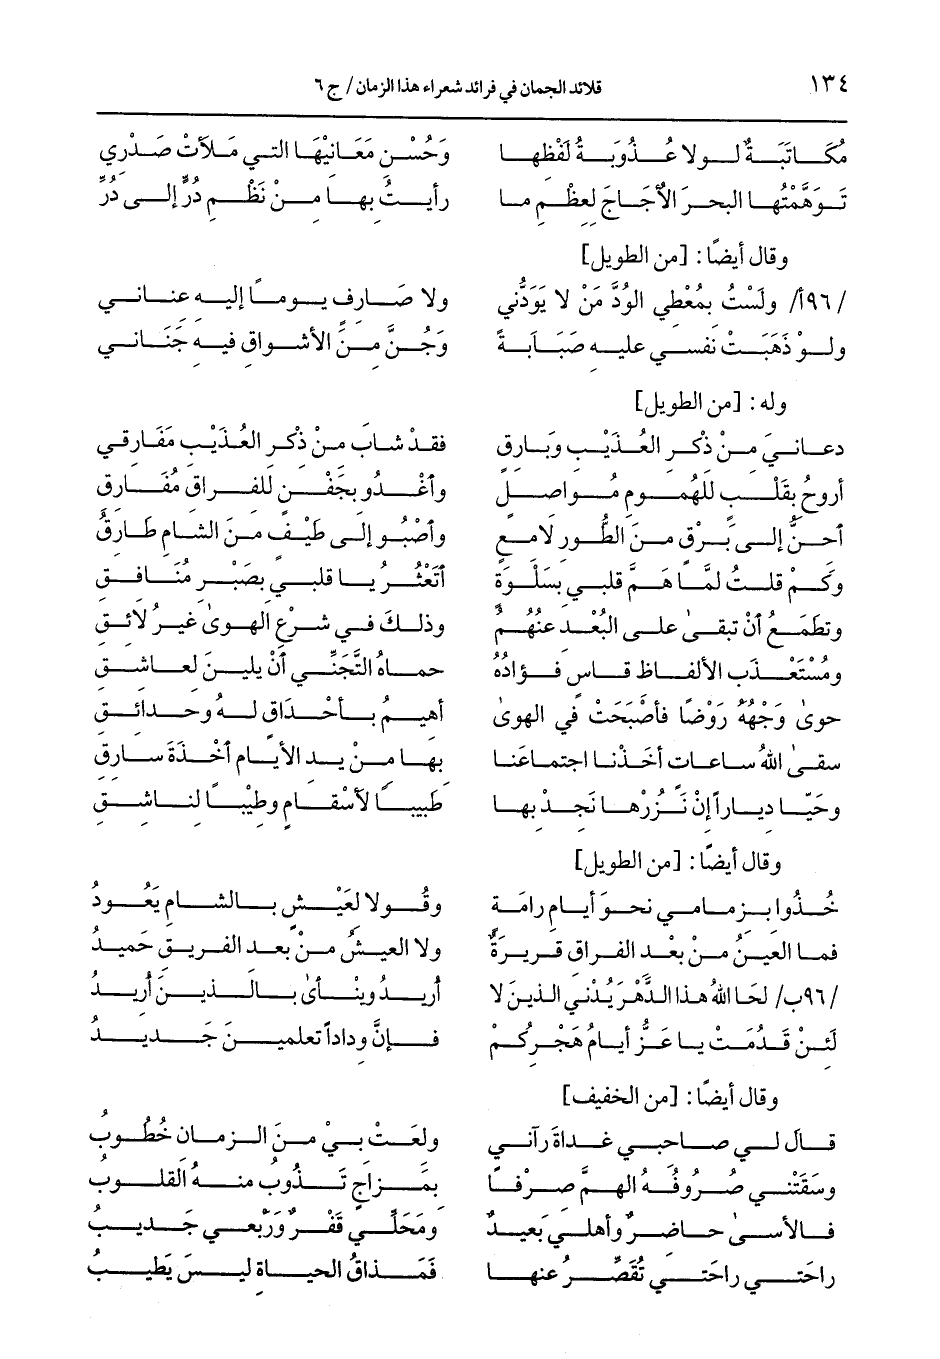 ١٣٤ قلائد الجمان في فرائد شعراء هذا الزمان / ج ٦
مُكَاتَبَةٌ لولا عُذُوبَةُ لَفْظِها وَحُسْنِ مَعَانِيْهَا التي مَلأَتْ صَدْري
تَوَهَّمْتُها البحرَ الأُجَاجَ لعظْمِ ما رأيتُ بها منْ نَظْمِ دُرٍّ إلى دُرِّ
وقال أيضًا: [من الطويل]
/٩٦أ/ ولَسْتُ بمُعْطي الوُدَّ مَنْ لا يَوَدُّني ولا صَارفٍ يومًا إليه عناني
ولو ذَهَبَتْ نفسي عليه صَبَابَةً وَجُنَّ منَ الأشواق فيه جَنَاني
وله: [من الطويل]
دعانيَ منْ ذكْر العُذَيْب وبَارق فقدْ شابَ منْ ذكْر العُذَيْبِ مَفَارقي
أروحُ بقَلْبٍ للهُمومِ مُواصلٍ وأغْدُو بجَفْنٍ للفراق مُفَارق
أحنُّ إلى بَرْقٍ منَ الطُّور لامعٍ وأصْبُو إلى طَيْفٍ منَ الشام طَارقُ
وكمْ قلتُ لمَّا هَمَّ قلبي بسَلْوَة أتَعْثُرُ يا قلبي بصَبْرٍ مُنَافق
وتطمَعُ أنْ تبقى على البُعْد عنهُمُ وذلكَ في شرْعِ الهوىٰ غيرُ لائق
ومُسْتَعْذَبِ الألفاظ قاسٍ فؤادُهُ حماهُ التَّجَنِّي أنْ يلينَ لعَاشق
حوىٰ وَجْهُهُ رَوْضًا فأصْبَحْتُ في الهوىٰ أهيمُ بأحْداق لهُ وحدائق
سقىٰ اللهُ ساعات أخَذْنا اجتماعَنا بها منْ يد الأيامِ أخْذَةَ سارق
وحَيَّا دياراً إنْ نَزُرْها نَجدْ بها طَبيبًا لأسْقَامٍ وطيْبًا لناشق
وقال أيضًا: [من الطويل]
خُذُوا بزمامي نحوَ أيام رامَة وقُولا لعَيْشٍ بالشامِ يَعُودُ
فما العينُ منْ بعْد الفراق قريرةٌ ولا العيشُ منْ بعد الفريق حَميدُ
/٩٦ب/ لَحَا اللهُ هذا الدَّهْرَ يُدْني الذينَ لا أُريدُ وينْأىٰ بالذينَ أُريدُ
لَئنْ قَدُمَتْ يا عَزُّ أيامُ هَجْرِكُمْ فإنَّ وداداً تعلمينَ جَديدُ
وقال أيضًا: [من الخفيف]
قال لي صاحبي غداةَ رآني ولعَتْ بيْ منَ الزمان خُطُوبُ
وسَقَتْني صُرُوفُهُ الهمَّ صرْفًا بمزاجٍ تَذُوبُ منهُ القلُوبُ
فالأسىٰ حاضرٌ وأهلي بَعيدٌ ومَحَلِّي قَفْرٌ ورَبْعي جَديبُ
راحَتي راحَتي تُقَصِّرُ عنها فمَذاقُ الحياة ليسَ يَطيبُ